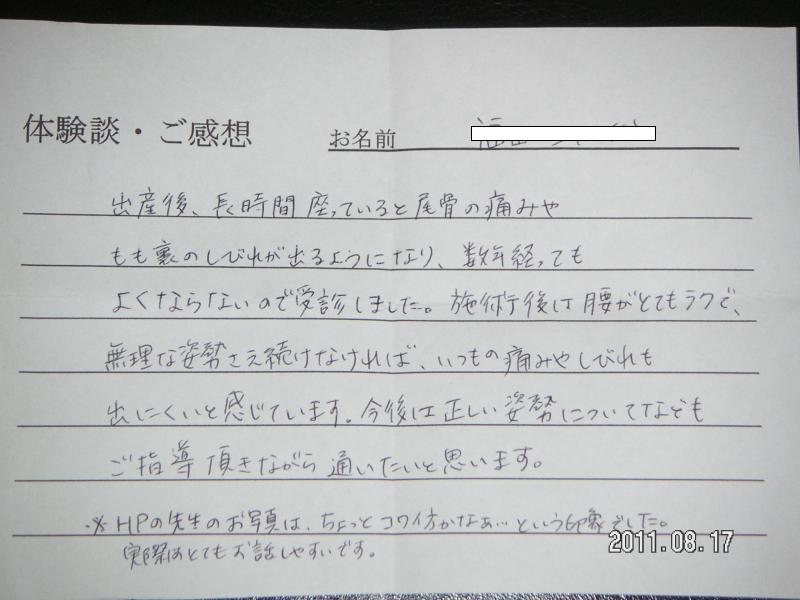 体験談・ご感想
お名前
出産後、長時間座っていると尾骨の痛みや
もも裏のしびれが出るようになり、数年経っても
よくならないので受診しました。施術後は腰がとてもラクで、
無理な姿勢さえ続けなければ、いつもの痛みやしびれも
出にくいと感じています。今後は正しい姿勢についてなども
ご指導頂きながら通いたいと思います。
※HPの先生のお写真は、ちょっとコワイ方かなぁ…という印象でした。
実際はとてもお話しやすいです。
2011.08.17